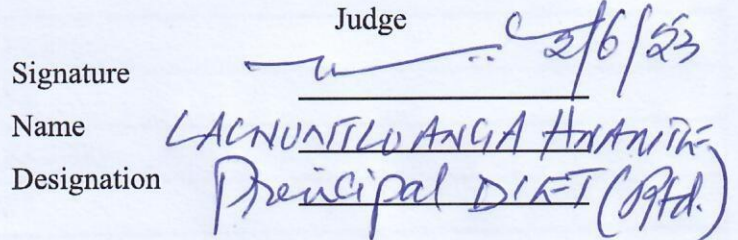 Judge
Signature 2/6/23
Name LALNUNTLUANGA HNAMTE
Designation Principal DIET (Rtd.)